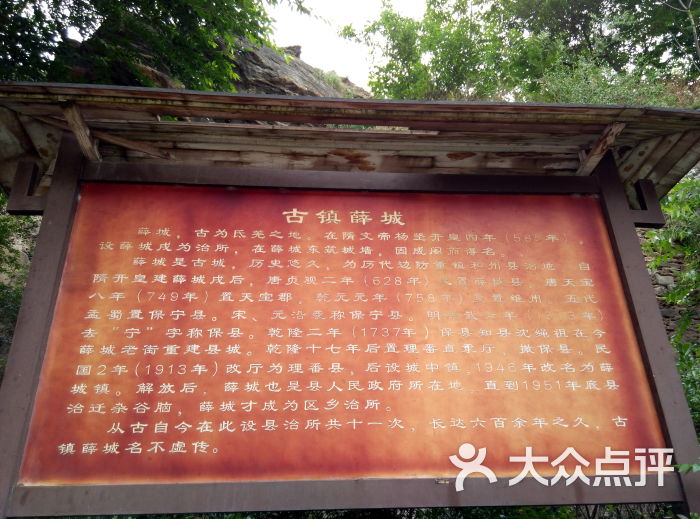 古镇薛城
薛城，古为氐羌之地。在隋文帝杨坚开皇四年（585年），
设薛城戍为治所，在薛城东筑城墙，因成阁而得名。
薛城是古城，历史悠久，为历代边防重镇和州县治地。自
隋开皇建薛城戍后，唐贞观二年（628年）置薛城县。唐天宝
八年（749年）置天宝郡，乾元元年（758年）置维州，五代
孟蜀置保宁县。宋、元沿袭称保宁县。明
去“宁”字称保县。乾隆二年（1737年）保县知县沈绳祖在今
薛城老街重建县城。乾隆十七年后置理番直隶厅，撤保县。民
国2年（1913年）改厅为理番县，后设城中镇，1946年改名为薛
城镇。解放后，薛城也是县人民政府所在地，直到1951年底县
治迁杂谷脑，薛城才成为区乡治所。
从古自今在此设县治所共十一次，长达六百余年之久，古
镇薛城名不虚传。
大众点评